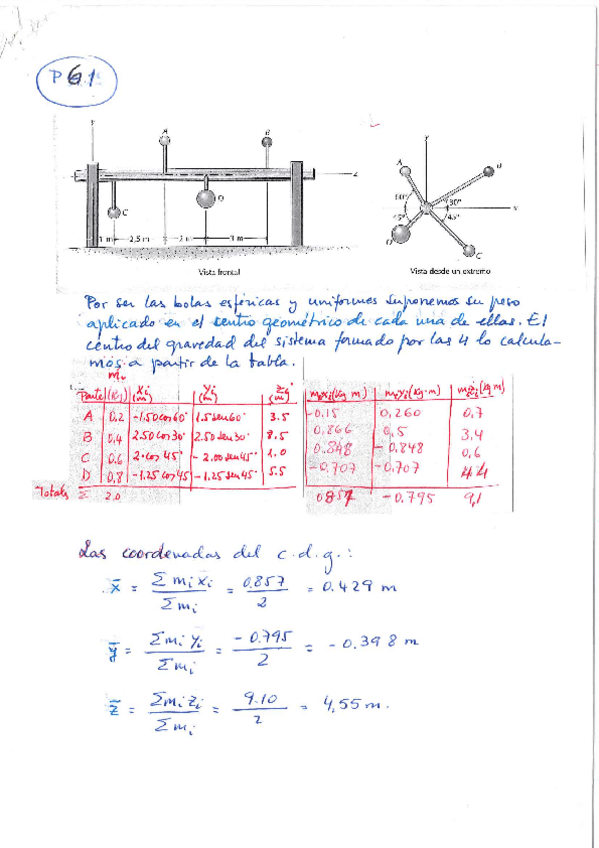 P 61
A
B
z
C
D
1 m
2,5 m
2 m
3 m
Vista frontal
y
A
B
60°
30°
x
45°
45°
D
C
Vista desde un extremo
Por ser las bolas esféricas y uniformes suponemos su peso
aplicado en el centro geométrico de cada una de ellas. El
centro del gravedad del sistema formado por las 4 lo calcula-
mos a partir de la tabla.
Parte mᵢ (kg) xᵢ (m) yᵢ (m) zᵢ (m) mᵢxᵢ (kg m) mᵢyᵢ (kg·m) mᵢzᵢ (kg m)
A 0,2 -1.50 cos 60° 1.5 sen 60° 3.5 -0,15 0,260 0,7
B 0,4 2.50 cos 30° 2.50 sen 30° 8.5 0,866 0,5 3,4
C 0,6 2·cos 45° -2.00 sen 45° 1.0 0.848 -0,848 0,6
D 0,8 -1.25 cos 45 -1.25 sen 45° 5.5 -0,707 -0,707 4,4
Totals Σ 2.0 0857 -0.795 9,1
Las coordenadas del c.d.g.:
x̄ = Σ mᵢxᵢ / Σ mᵢ = 0.857 / 2 = 0.429 m
ȳ = Σ mᵢ yᵢ / Σ mᵢ = -0.795 / 2 = -0.398 m
z̄ = Σ mᵢ zᵢ / Σ mᵢ = 9.10 / 2 = 4,55 m.